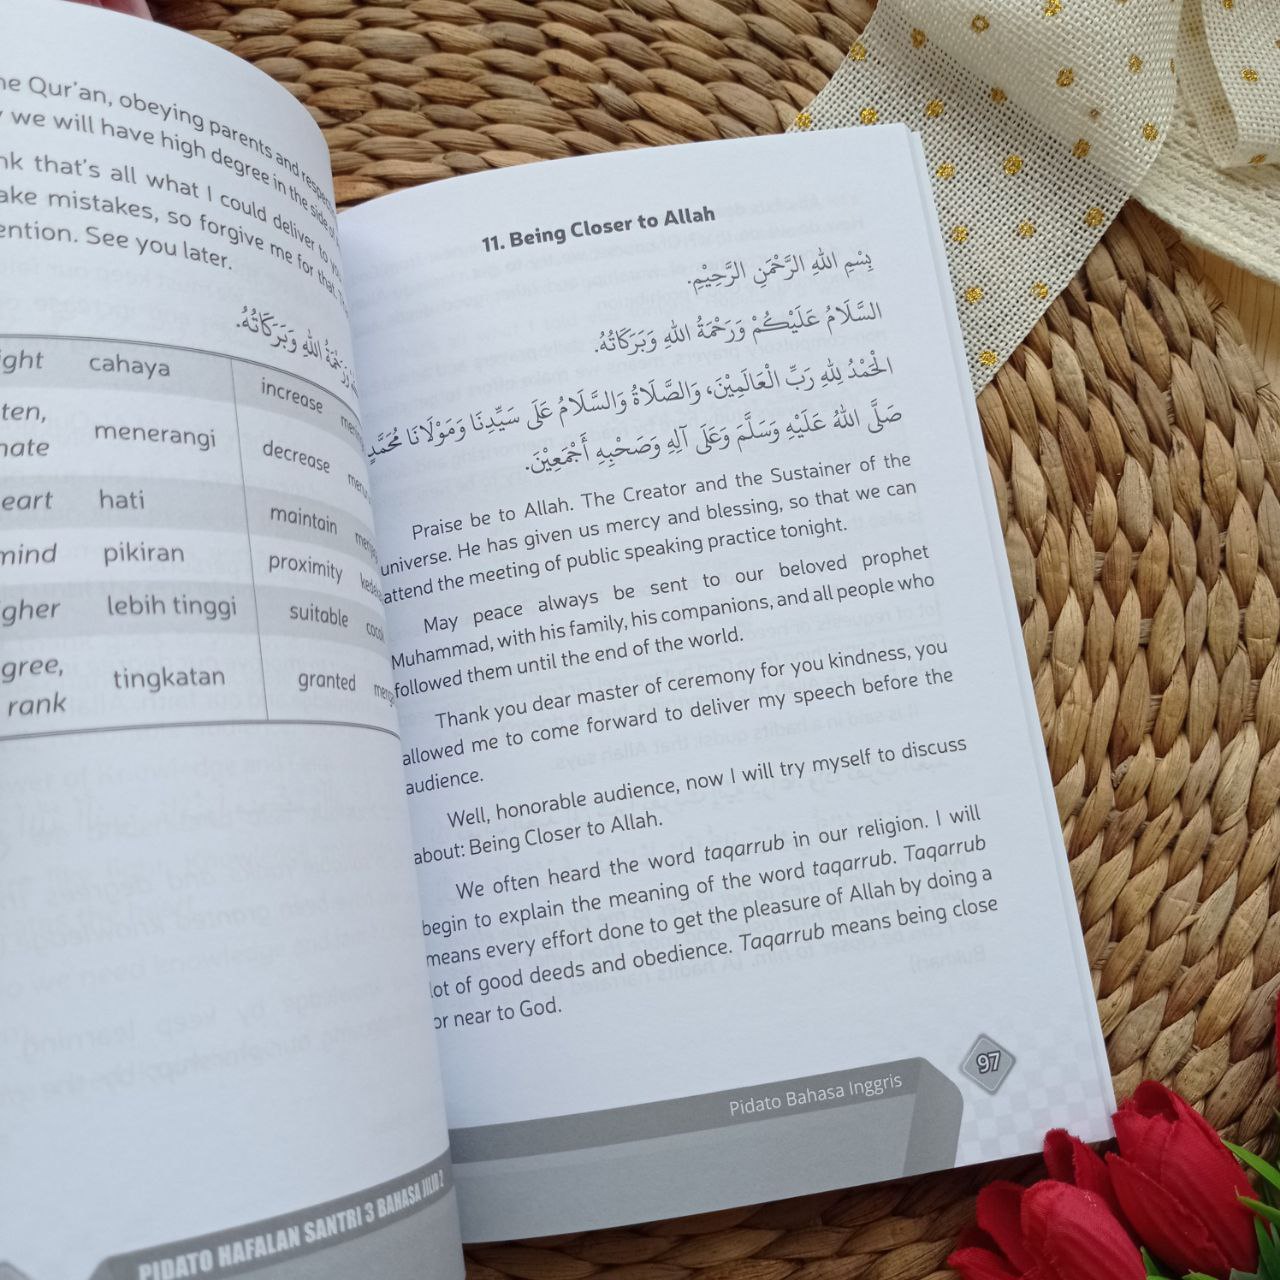 he Qur'an, obeying parents and
we will have high degree in the side of
nk that's all what I could deliver to you
ake mistakes, so forgive me for that.
ention. See you later.
وَرَحْمَةُ اللهِ وَبَرَكَاتُهُ.
ight cahaya increase
ten,
nate menerangi decrease
eart hati maintain
mind pikiran proximity
gher lebih tinggi suitable
gree,
rank tingkatan granted
PIDATO HAFALAN SANTRI 3 BAHASA JILID 2
11. Being Closer to Allah
بِسْمِ اللهِ الرَّحْمَنِ الرَّحِيْمِ.
السَّلَامُ عَلَيْكُمْ وَرَحْمَةُ اللهِ وَبَرَكَاتُهُ.
الْحَمْدُ لِلهِ رَبِّ الْعَالَمِيْنَ، وَالصَّلَاةُ وَالسَّلَامُ عَلَى سَيِّدِنَا وَمَوْلَانَا مُحَمَّدٍ
صَلَّى اللهُ عَلَيْهِ وَسَلَّمَ وَعَلَى آلِهِ وَصَحْبِهِ أَجْمَعِيْنَ.
Praise be to Allah. The Creator and the Sustainer of the
universe. He has given us mercy and blessing, so that we can
attend the meeting of public speaking practice tonight.
May peace always be sent to our beloved prophet
Muhammad, with his family, his companions, and all people who
followed them until the end of the world.
Thank you dear master of ceremony for you kindness, you
allowed me to come forward to deliver my speech before the
audience.
Well, honorable audience, now I will try myself to discuss
about: Being Closer to Allah.
We often heard the word taqarrub in our religion. I will
begin to explain the meaning of the word taqarrub. Taqarrub
means every effort done to get the pleasure of Allah by doing a
lot of good deeds and obedience. Taqarrub means being close
or near to God.
Pidato Bahasa Inggris 97